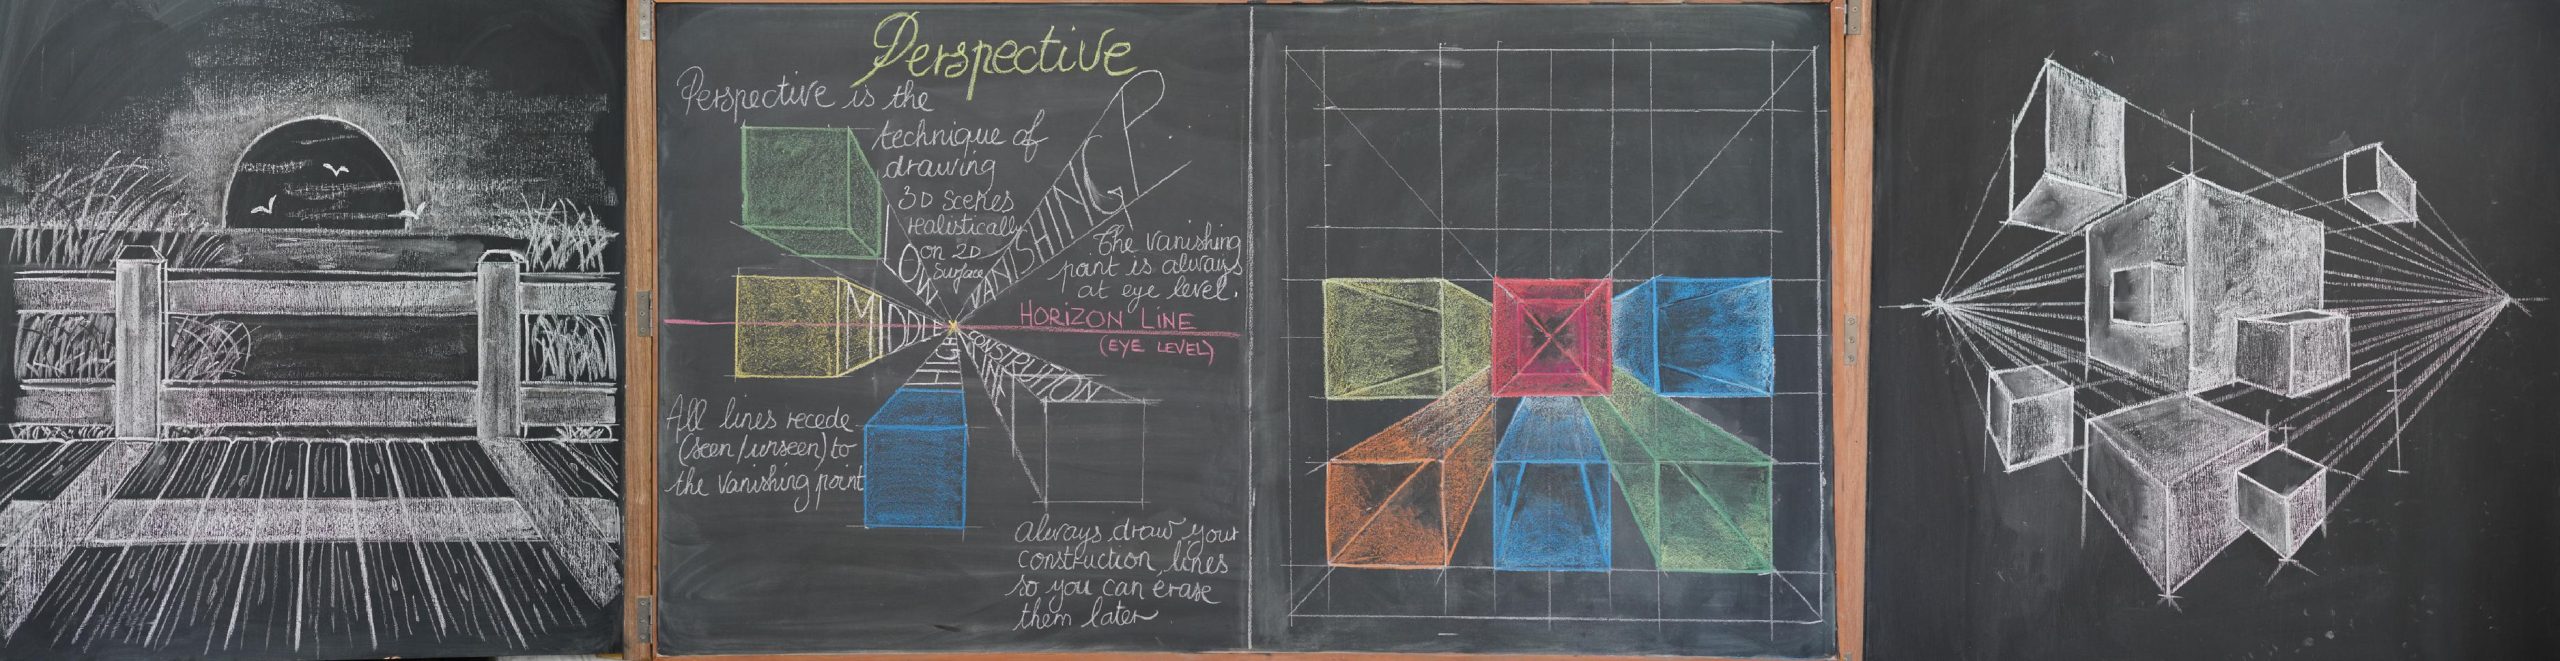 Perspective
Perspective is the
technique of
drawing
3D scenes
realistically
on 2D
surface
LOW
VANISHING P.
The vanishing
point is always
at eye level.
MIDDLE
HORIZON LINE
(EYE LEVEL)
HIGH
CONSTRUTION
All lines recede
(seen/unseen) to
the vanishing point
always draw your
construction lines
so you can erase
them later